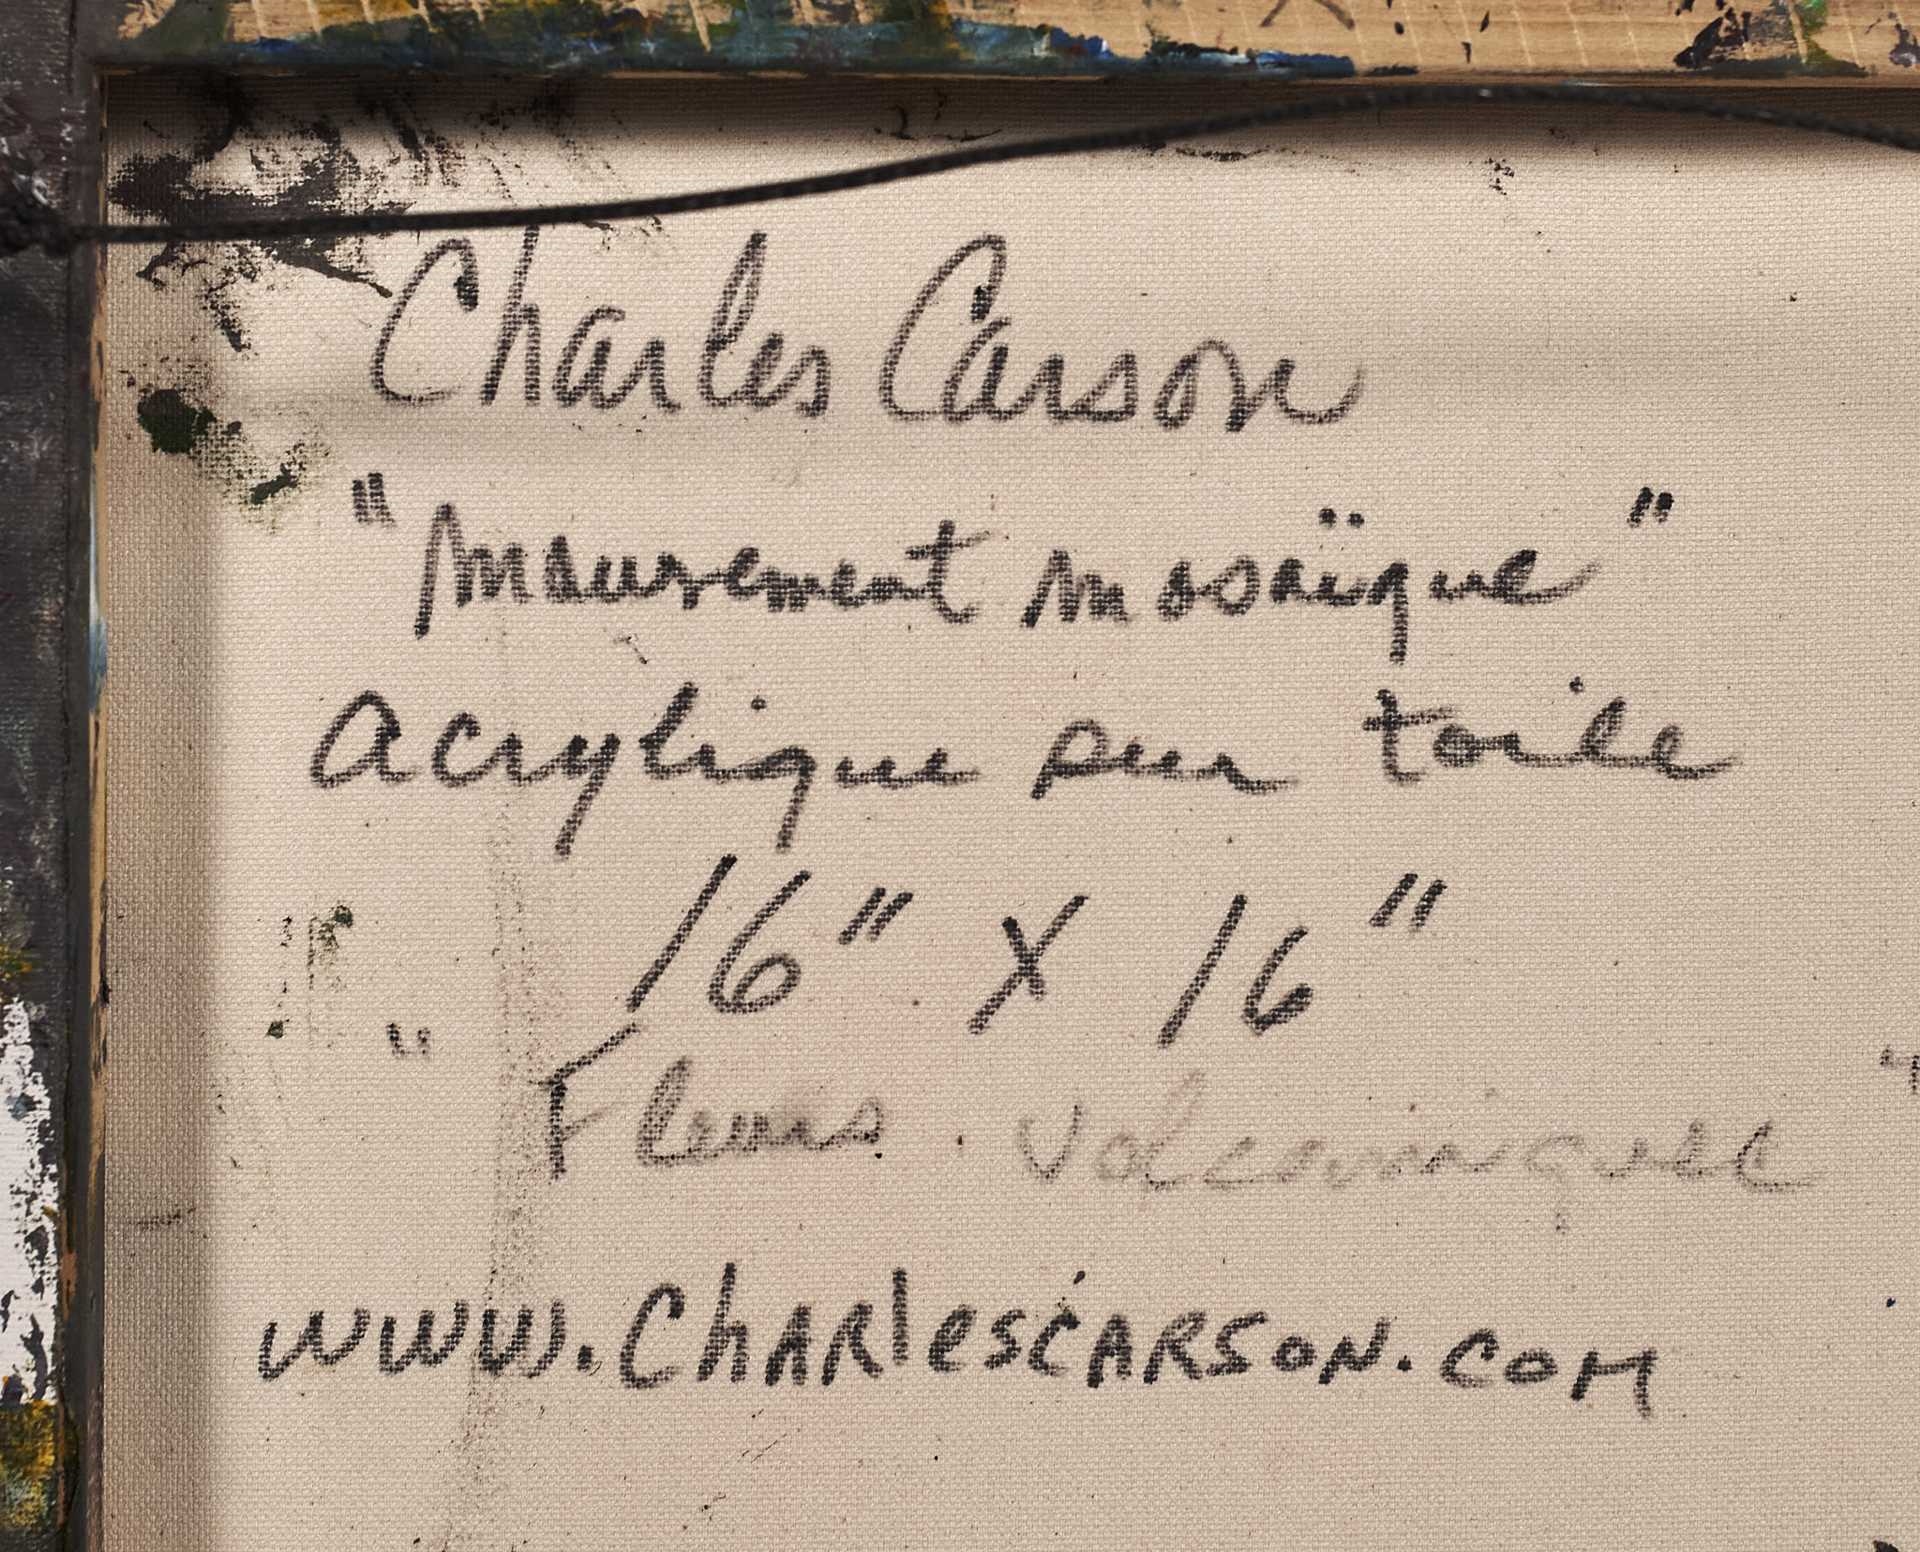 Charles Carson
"Mouvement mosaïque"
acrylique sur toile
16" X 16"
"Fleurs volcanique"
www.CHARlesCARSON.COM